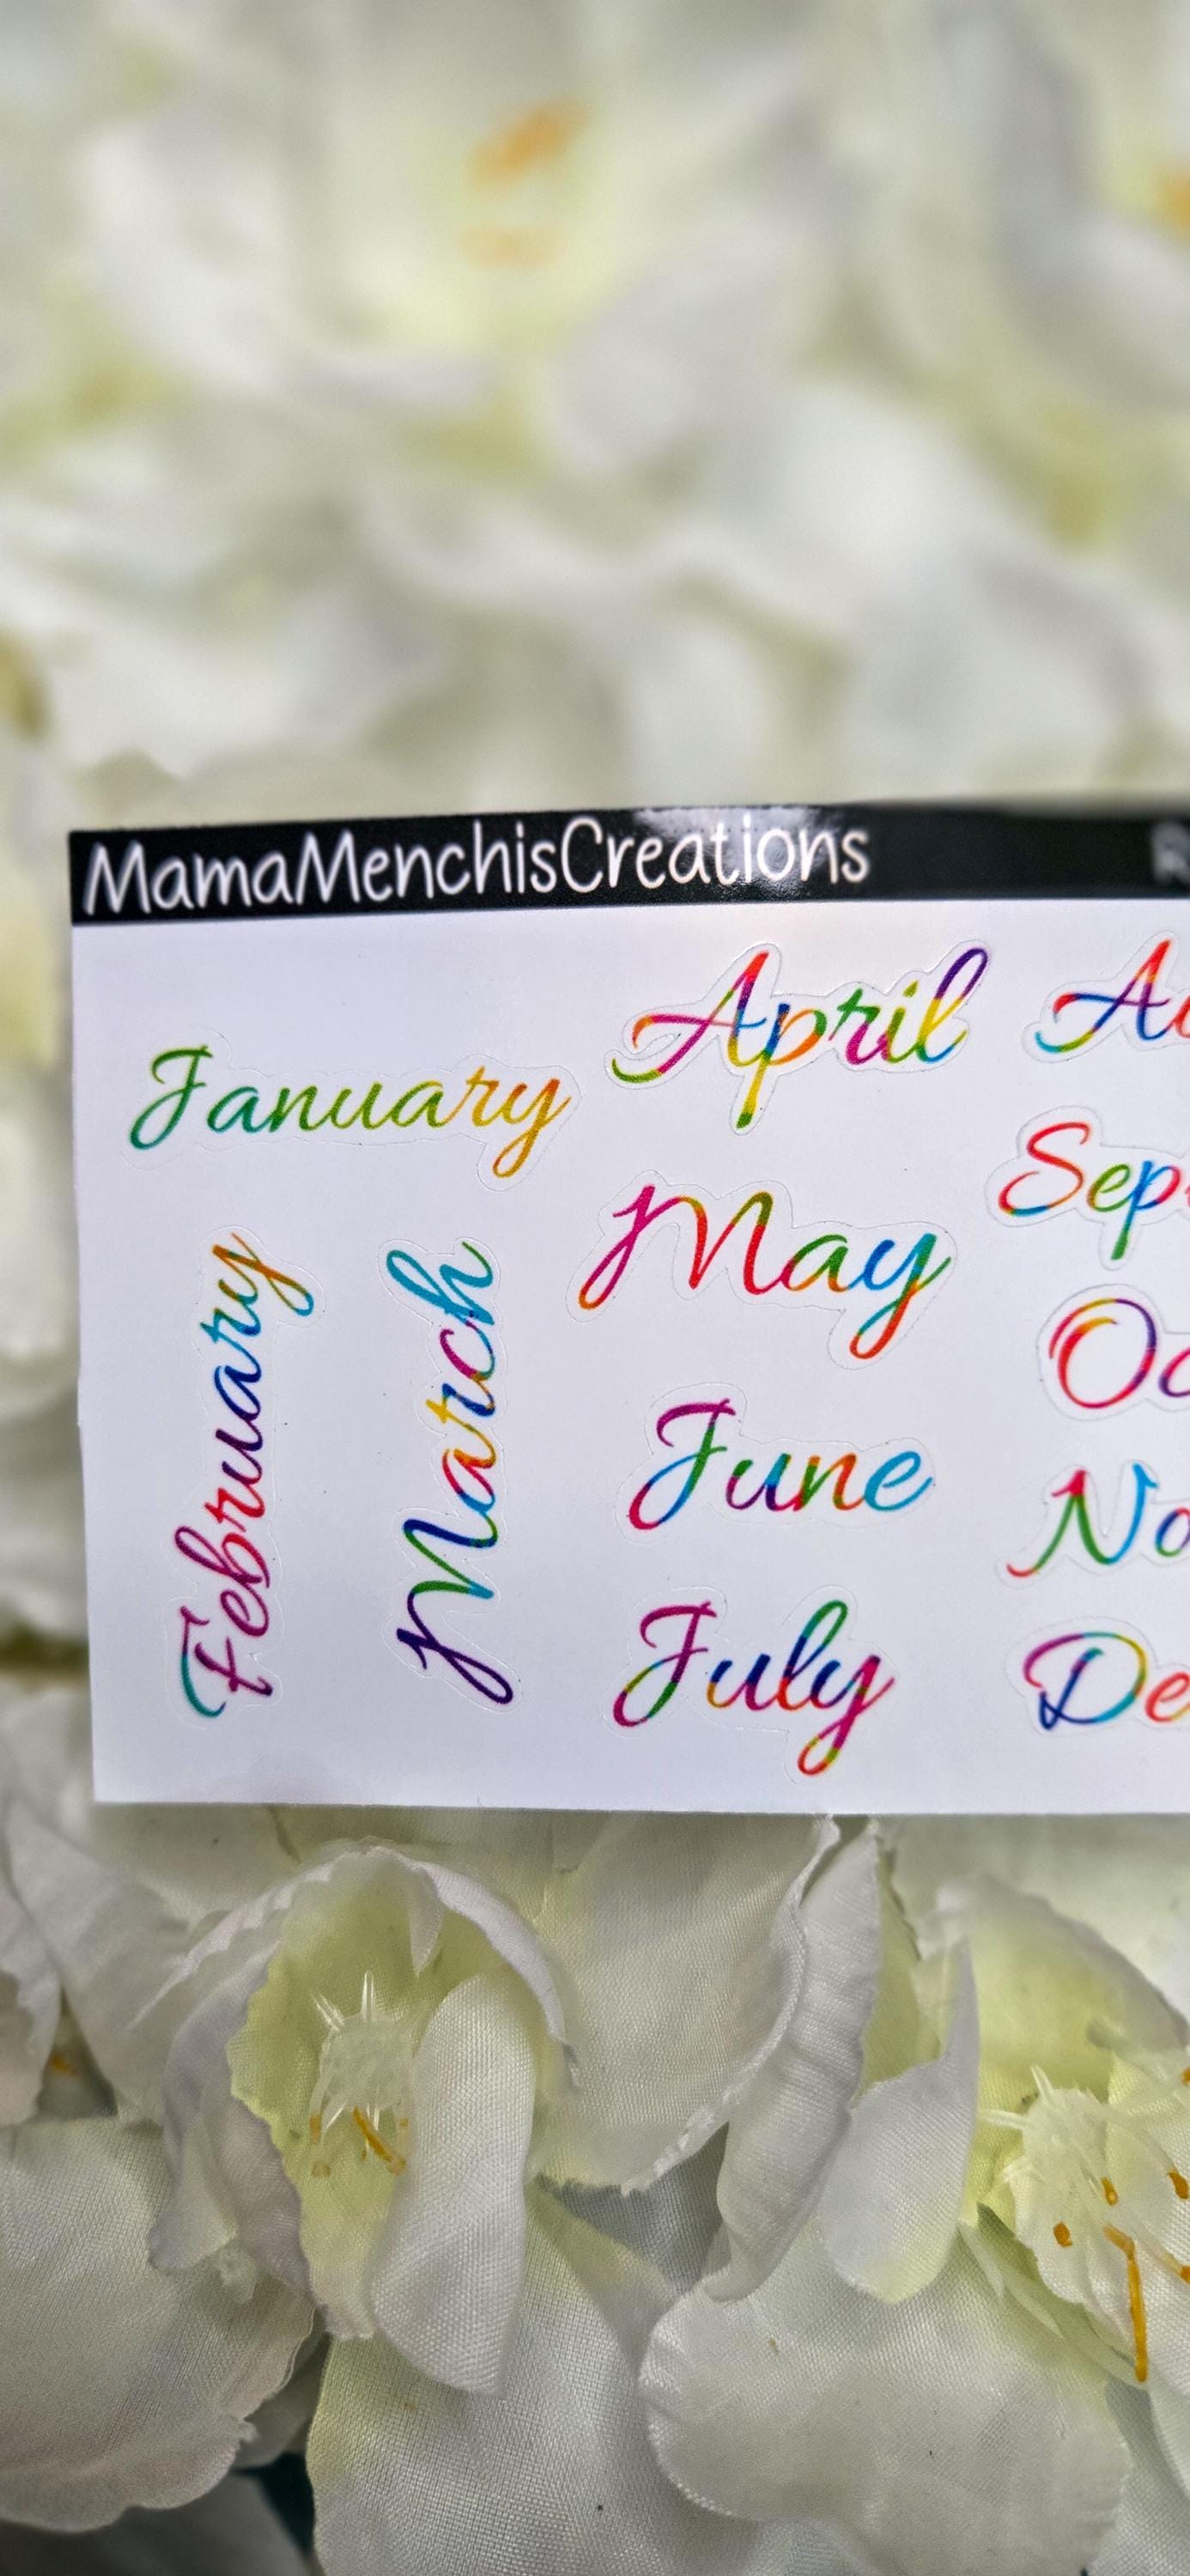 MamaMenchisCreations
January
February
March
April
May
June
July
Sep
Oc
No
De